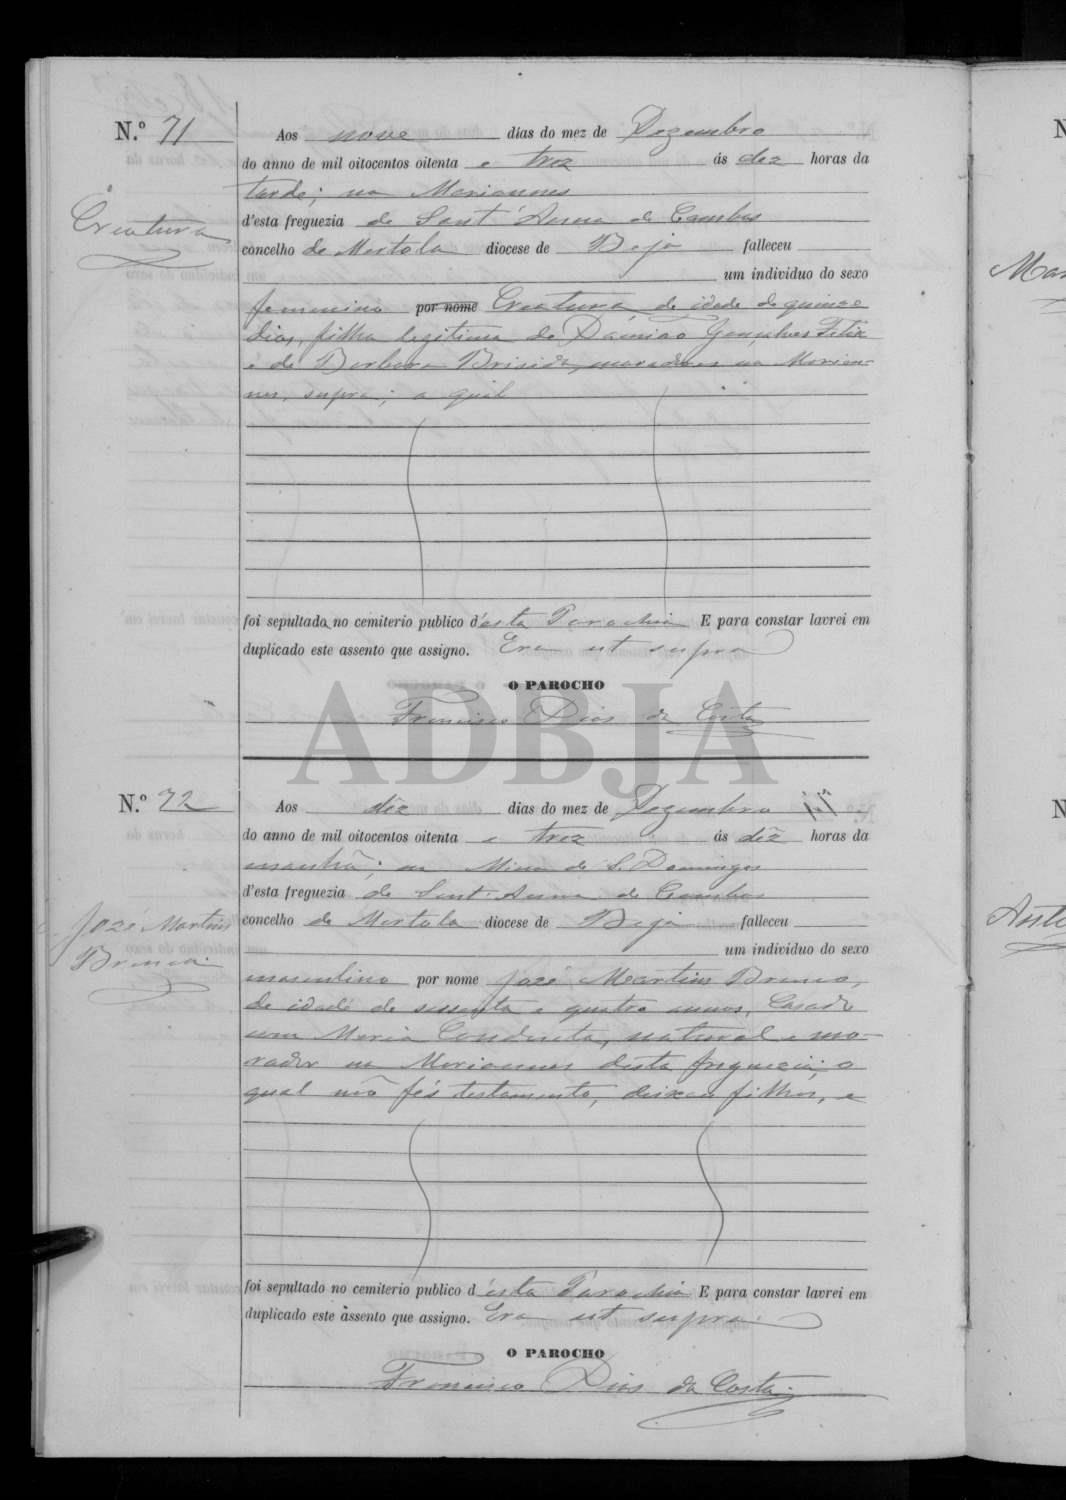 N.º 71
Aos nove dias do mez de Dezembro
do anno de mil oitocentos oitenta e trez ás dez horas da
tarde; na Moriannes
d'esta freguezia de Sant'Anna de Cambas
concelho de Mertola diocese de Beja falleceu
Creatura
um individuo do sexo
femenino por nome Creatura de idade de quinze
dias, filha legitima de Damião Gonçalves Felix
e de Barbara Brisida, moradores na Morian-
nes, supra; a qual
foi sepultada no cemiterio publico d'esta Parochia E para constar lavrei em
duplicado este assento que assigno. Era ut supra
O PAROCHO
Francisco Dias da Costa
ADBJA
N.º 72
Aos dez dias do mez de Dezembro
do anno de mil oitocentos oitenta e trez ás dez horas da
manhã; na Mina de S. Domingos
d'esta freguezia de Sant'Anna de Cambas
concelho de Mertola diocese de Beja falleceu
José Martins
um individuo do sexo
masculino por nome José Martins
de idade de sessenta e quatro annos, Casado
com Maria Conduta, natural e mo-
rador na Moriannes desta freguezia; o
qual não fés testamento, deixou filhos, e
foi sepultado no cemiterio publico d'esta Parochia E para constar lavrei em
duplicado este assento que assigno. Era ut supra.
O PAROCHO
Francisco Dias da Costa
N
Mar
N
Anto